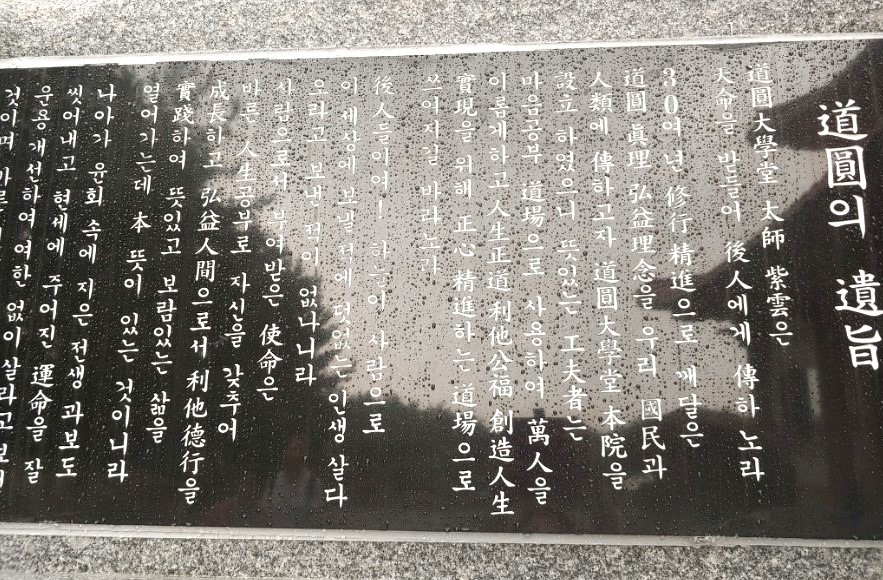 道圓의 遺旨
道圓大學堂 太師 紫雲은
大命을 받들어 後人에게 傳하노라
30여 년 修行 精進으로 깨달은
道圓 眞理 弘益理念을 우리 國民과
人類에 傳하고자 道圓大學堂 本院을
設立 하였으니 뜻있는 工夫者는
마음공부 道場으로 사용하여 萬人을
이롭게하고 人生正道 利他公福 創造人生
實現을 위해 正心 精進하는 道場으로
쓰여지길 바라노라
後人들이여! 하늘이 사람으로
이 세상에 보낼 적에 덧없는 인생 살다
오라고 보낸 적이 없나니라
사람으로서 부여받은 使命은
바른 人生공부로 자신을 갖추어
成長하고 弘益人間으로서 利他德行을
實踐하여 뜻있고 보람있는 삶을
열어가는데 本 뜻이 있는 것이니라
나아가 윤회 속에 지은 전생 과보도
씻어내고 현세에 주어진 運命을 잘
운용개선하여 여한 없이 살라고 보내
것이며